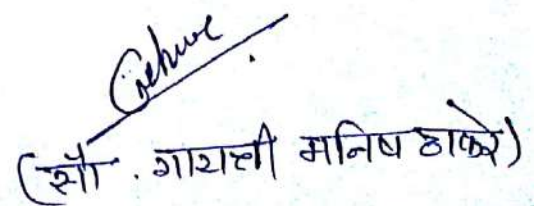 (सौ. गायत्री मनिष ठाकरे)